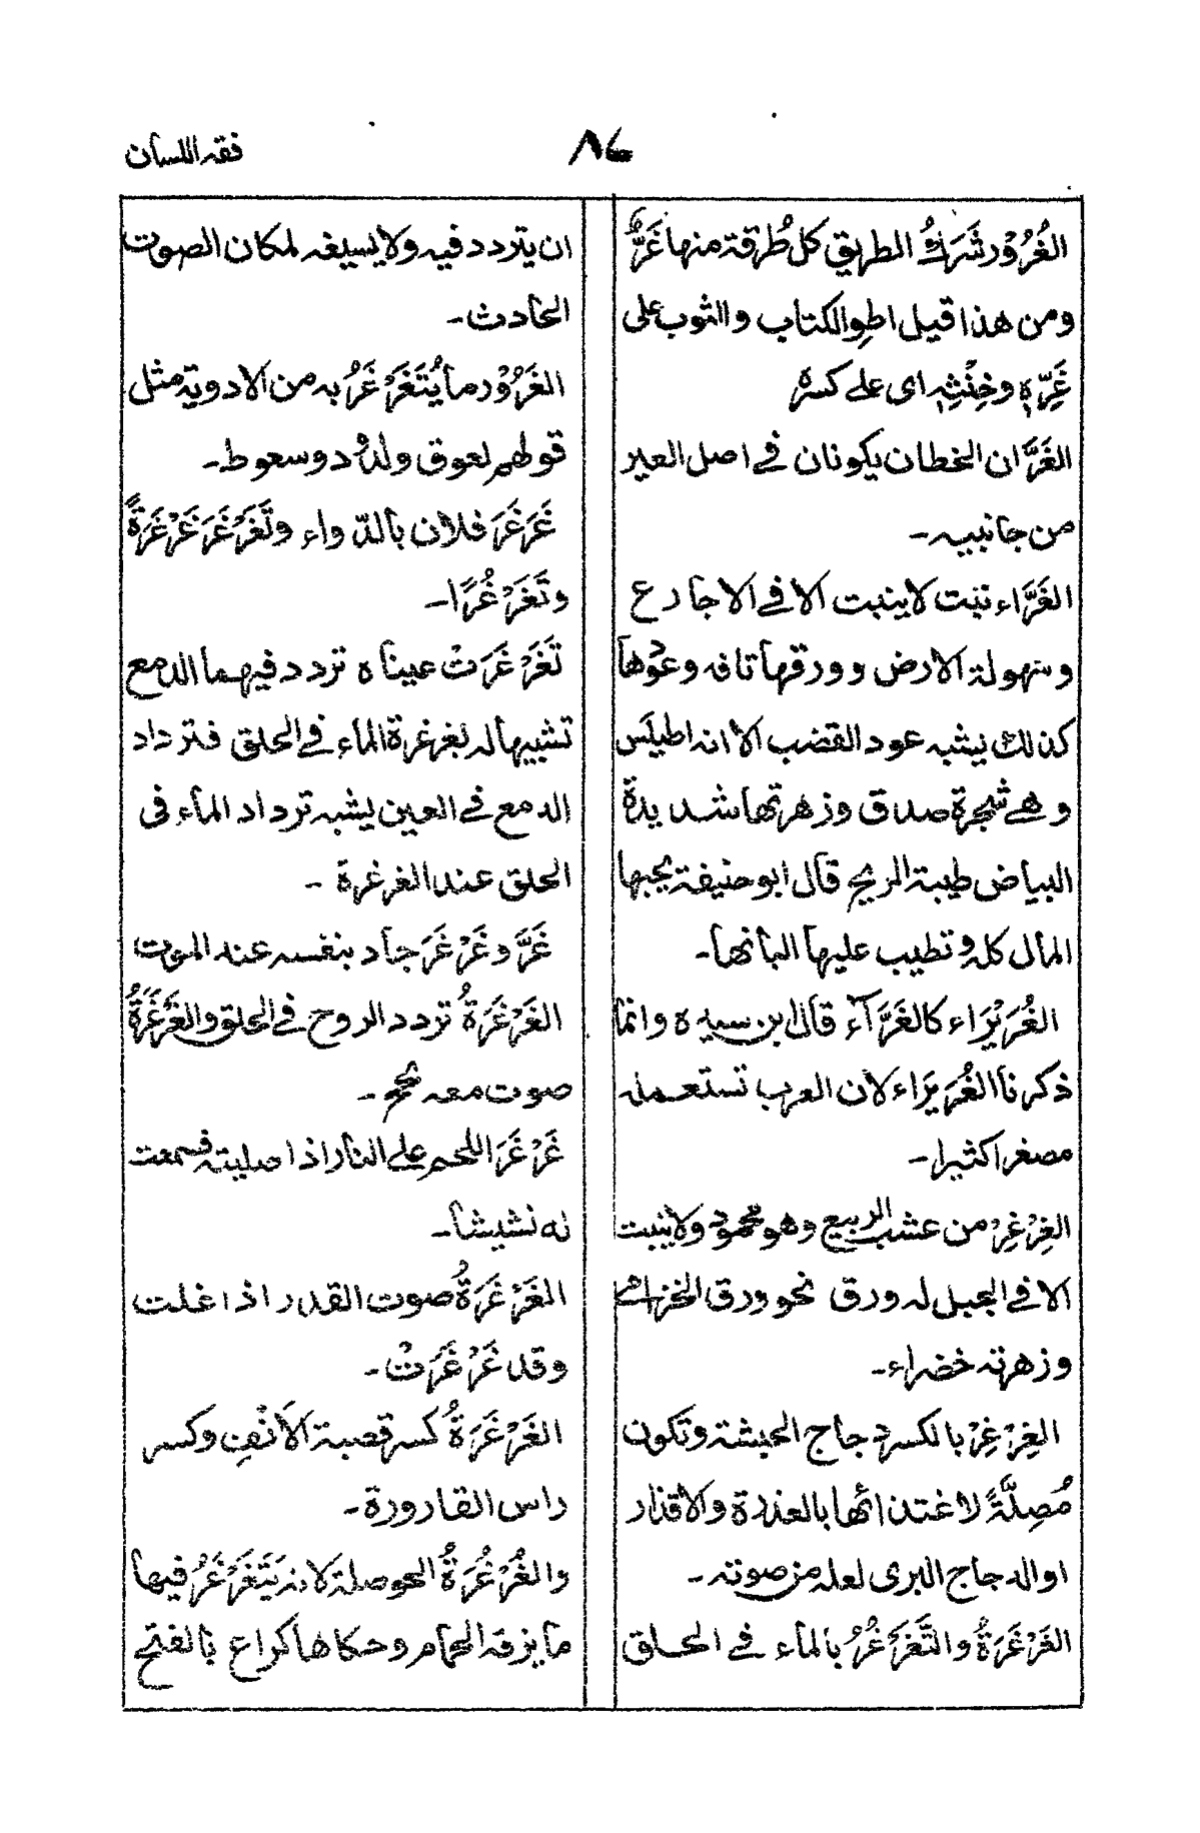 فقہ اللسان
٨٦
الغُرُوْر شَرَكُ الطريق كل طُرقة منها غَرٌّ
ومن هذا قيل اطوِ الكتاب والثوب على
غَرِّهٖ وخِنْثِهٖ اى على كسرهٖ
الغَرَّان الخطان يكونان فى اصل العير
من جانبيه۔
الغَرَّاء نبت لا ينبت الا فى الاجارع
وسهولة الارض وورقها تافه وعودها
كذلك يشبه عود القضب الا انه اطيلس
وهى شجرة صدق وزهرتها شديدة
البياض طيبة الريح قال ابو حنيفة يحبها
المال كله وتطيب عليها البانها۔
الغُرَيْرَاء كالغَرَّآء قال ابن سيده وانما
ذكرنا الغُرَيرَاء لان العرب تستعمله
مصغرا كثيرا۔
الغِرْغِرْ من عشب الربيع وهو محمود ولا ينبت
الا فى الجبل له ورق نحو ورق الخزامى
وزهرته خضراء۔
الغِرْغِرْ بالكسر دجاج الحبشة وتكون
مُصِلَّةً لاغتذائها بالعذرة والاقذار
او الدجاج البرى لعله من صوته۔
الغَرْغَرَةُ والتَّغَرْغُرُ بالماء فى الحلق
ان يتردد فيه ولا يسيغه لمكان الصوت
الحادث۔
الغَرُوْر ما يُتَغَرْغَرُ به من الادوية مثل
قولهم لعوق ولدُود وسعوط۔
غَرغَرَ فلان بالدّواء وتَغَرْغَرَ غَرْغَرَةً
وتَغَرْغُرًا۔
تَغَرْغَرَتْ عيناه تردد فيهما الدمع
تشبيها له بغرغرة الماء فى الحلق فترداد
الدمع فى العين يشبه ترداد الماء فى
الحلق عند الغرغرة ۔
غَرَّ وغَرْغَرَ جاد بنفسه عند الموت
الغَرْغَرَةُ تردد الروح فى الحلق والغَرْغَرَةُ
صوت معه بحح ۔
غَرْغَرَ اللحم على النار اذا صليته فسمعت
له نشيشا۔
الغَرْغَرَةُ صوت القدر اذا غلت
وقد غَرْغَرَتْ۔
الغَرْغَرَةُ كسر قصبة الاَنْفِ وكسر
راس القارورة۔
والغُرْغُرَةُ الحوصلة لانه يَتَغَرْغَرُ فيها
ما يزقه الحمام وحكاها كراع بالفتح